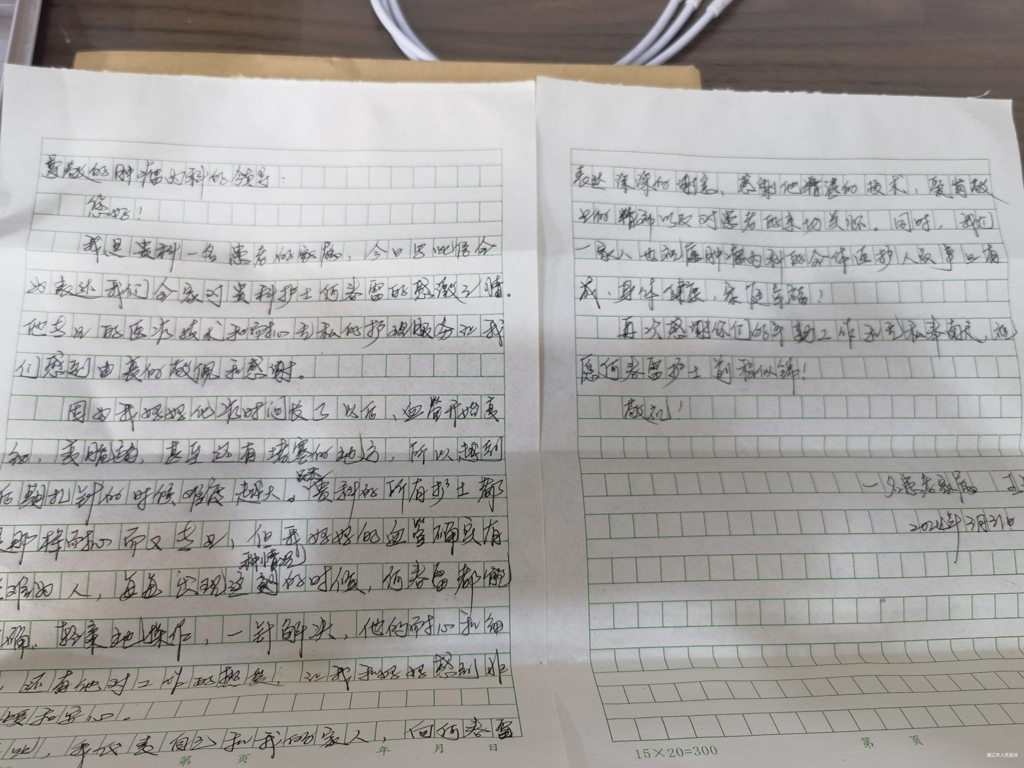 尊敬的肿瘤内科的领导:
您好!
我是贵科一名患者的家属,今日写此信合
为表达我们全家对贵科护士何春雷的感激之情。
他专业的医疗技术和耐心无私的护理服务让我
们感到由衷的敬佩和感谢。
因为我妈妈化疗时间长了以后,血管开始变
细,变脆,甚至还有堵塞的地方,所以越到
后期扎针的时候难度越大。贵科的所有护士都
是那样耐心而又专业,但我妈妈的血管确实有
些难为人,每每出现这种情况的时候,何春雷都能
准确、轻柔地操作,一针解决,他的耐心和细
,还有他对工作的热爱,让我和妈妈感到非
暖和安心。
此,我代表自己和我的家人,向何春雷
第 页 年 月 日
表达深深的谢意,感谢他精湛的技术,爱岗敬
业的精神以及对患者的亲切关怀。同时,我们
一家人也祝愿肿瘤内科的全体医护人员事业有
成,身体健康,家庭幸福!
再次感谢你们的辛勤工作和无私奉献,祝
愿何春雷护士前程似锦!
敬礼!
一名患者家属 王
2024年3月21日
15×20=300
第 页